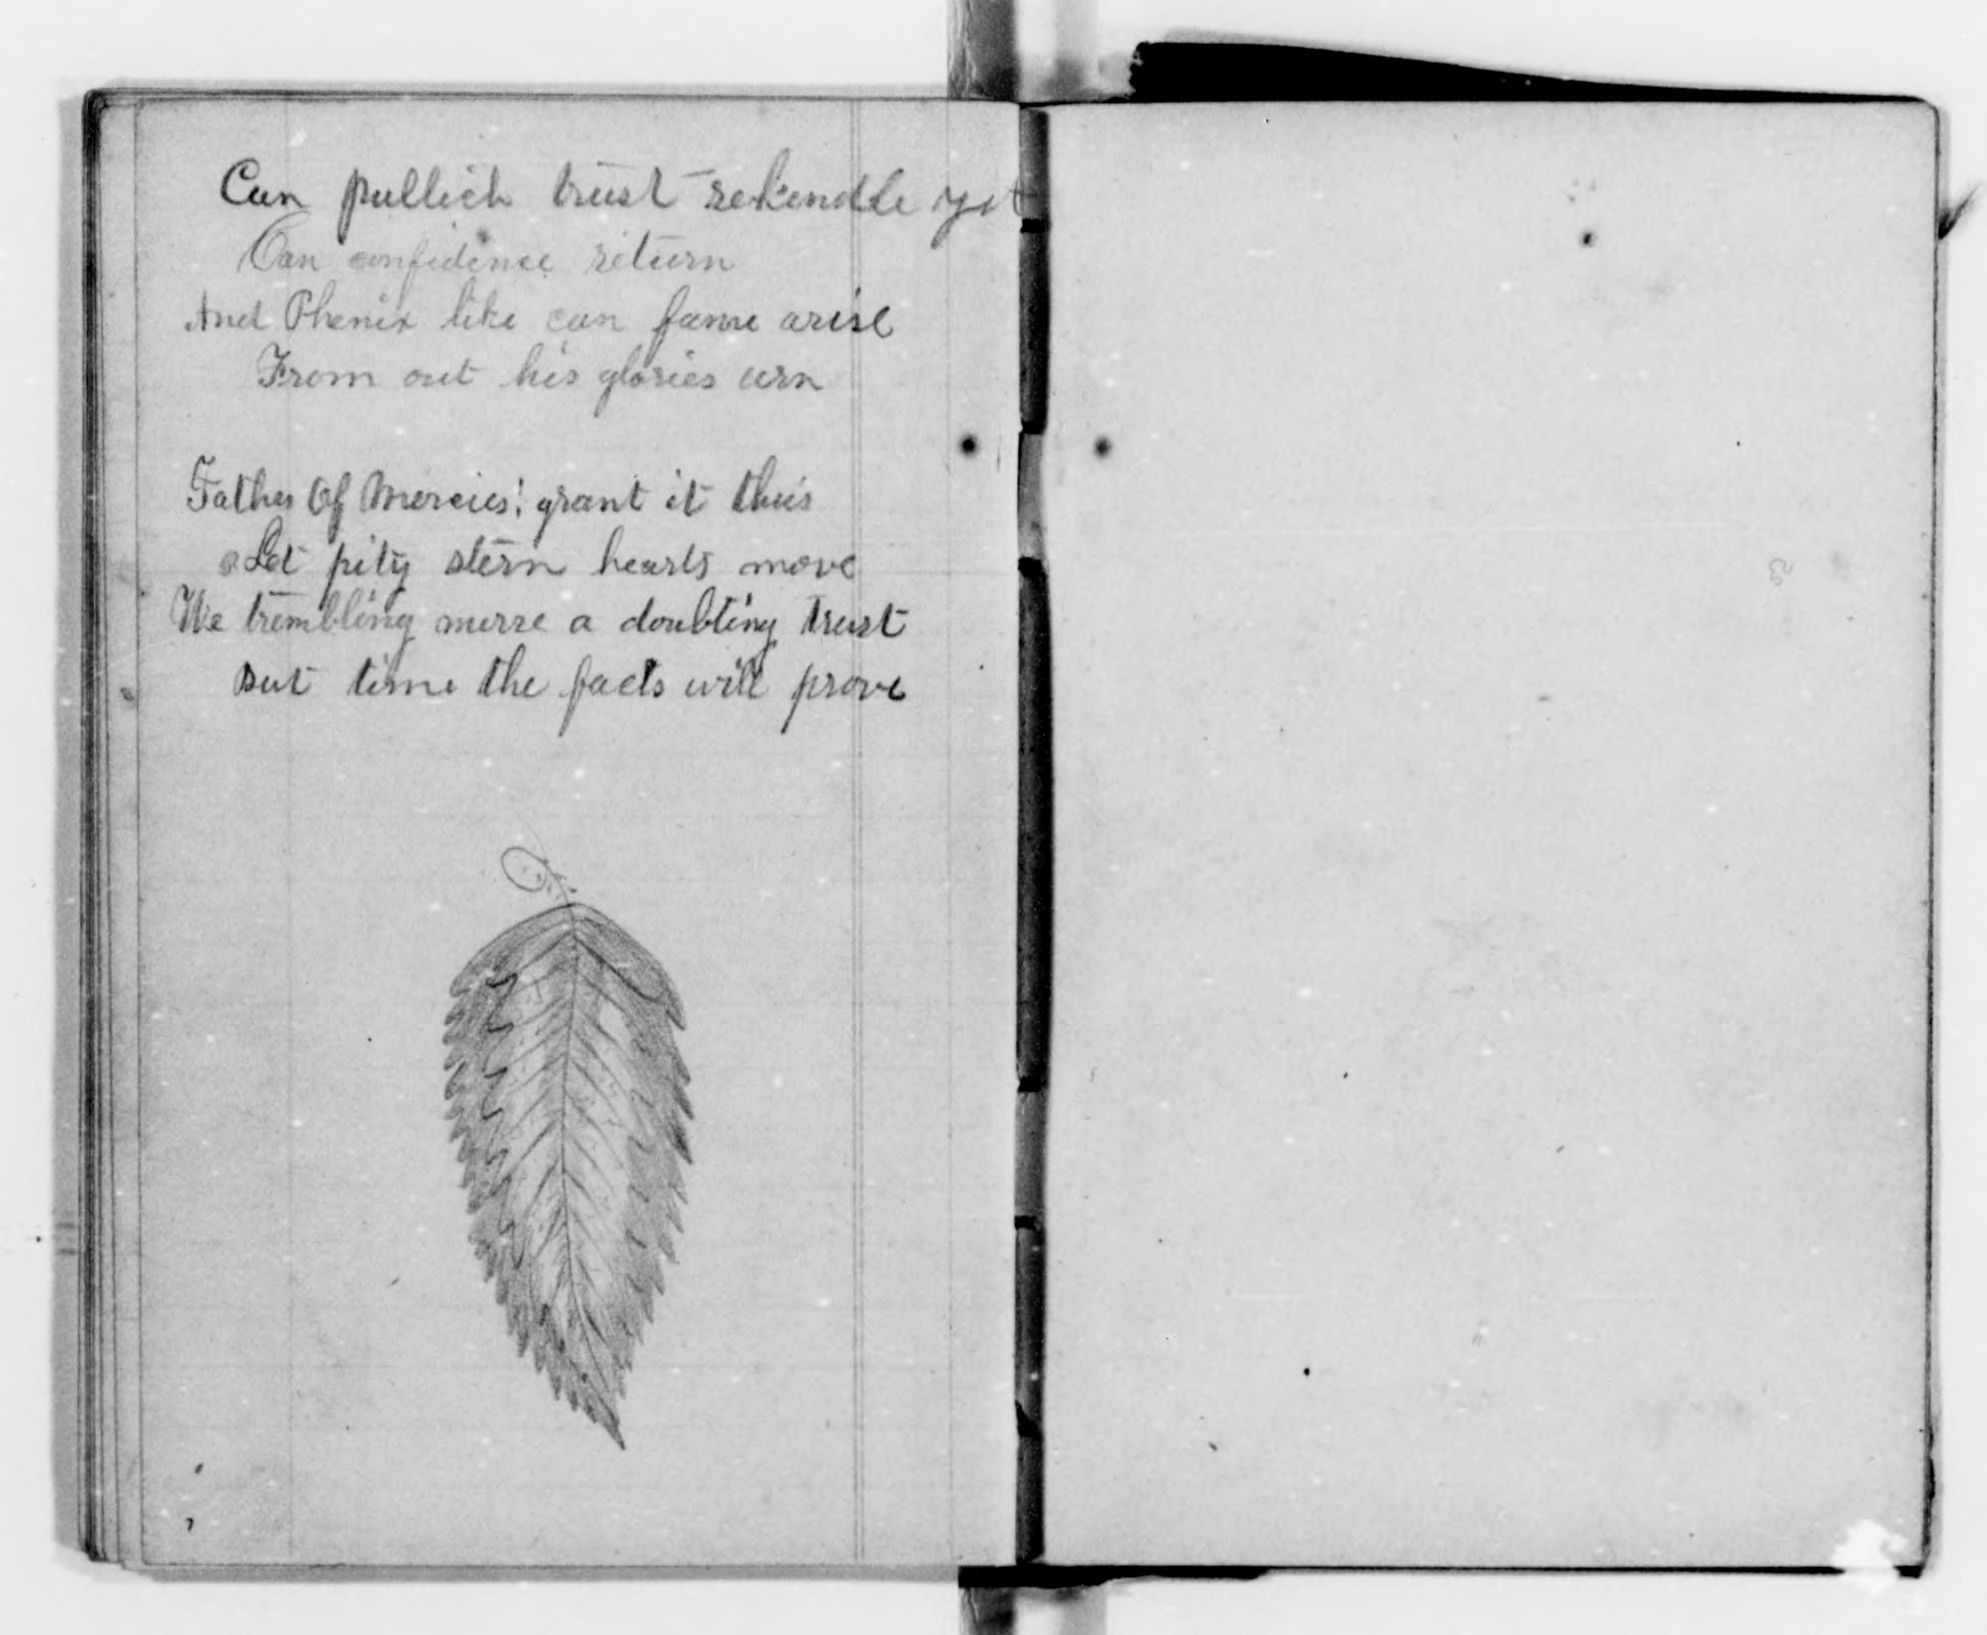 Can pullich trust rekindle yet
Can confidence return
And Phenix like can fame arise
From out his glories urn
Father Of Mercies! grant it thus
Let pity stern hearts move
We trembling nurse a doubting trust
But time the facts will prove